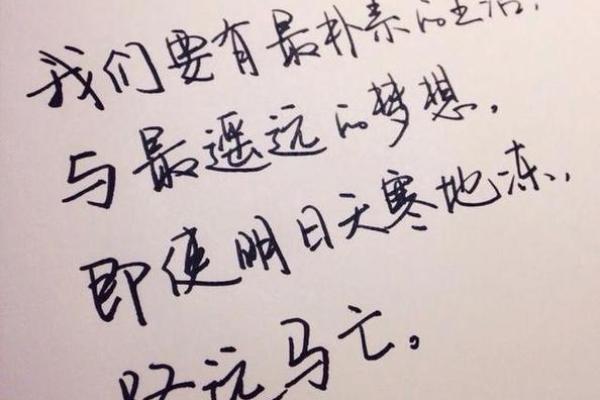 我们要有最朴素的生活,
与最遥远的梦想.
即使明日天寒地冻,
路远马亡。